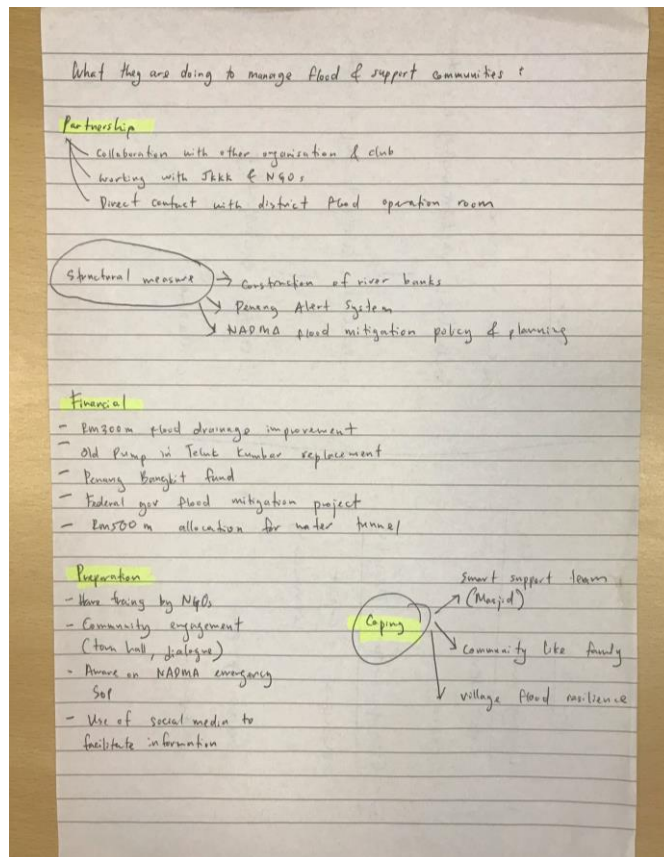 What they are doing to manage flood & support communities ?
Partnership
Collaboration with other organisation & club
Working with JKKK & NGOs
Direct contact with district flood operation room
Structural measure
Construction of river banks
Penang Alert System
NADMA flood mitigation policy & planning
Financial
- RM300m flood drainage improvement
- Old Pump in Teluk Kumbar replacement
- Penang Bangkit fund
- Federal gov flood mitigation project
- RM500m allocation for water tunnel
Preparation
- Have traing by NGOs
- Community engagement
(town hall, dialogue)
- Aware on NADMA emergency
SOP
- Use of social media to
facilitate information
Coping
Smart support team
(Masjid)
Community like family
village flood resilience